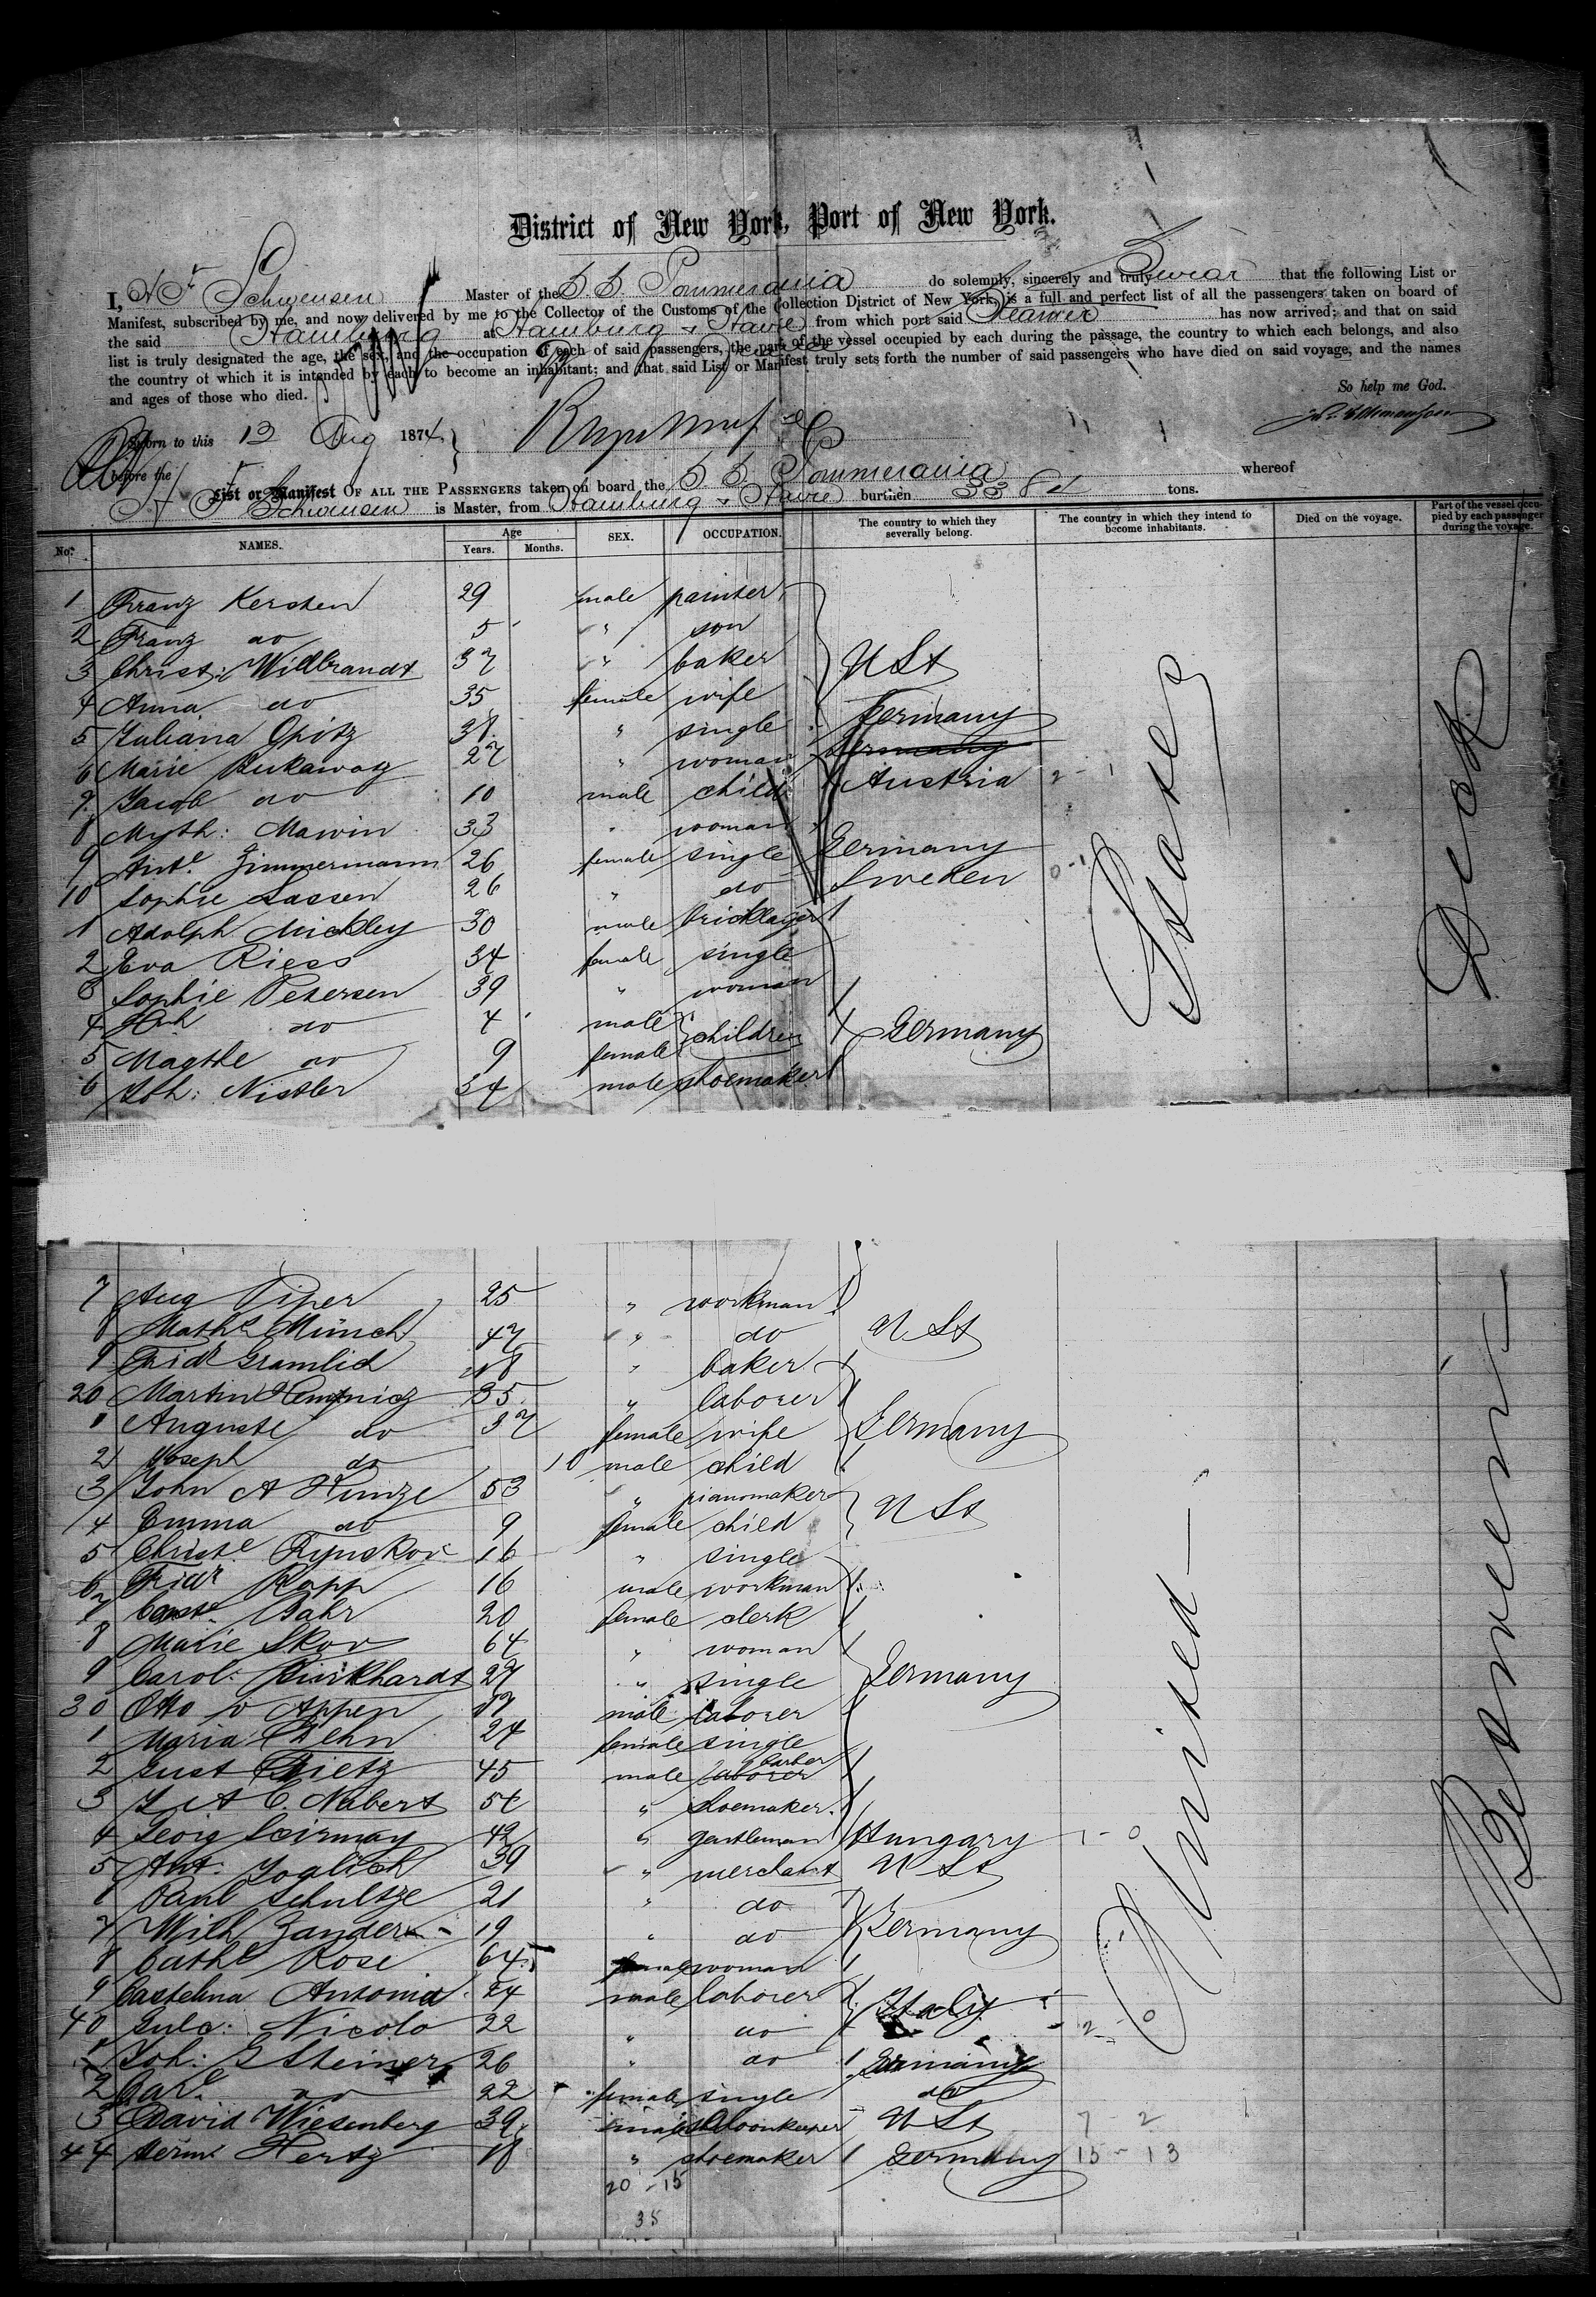 District of New York, Port of New York.
I, H F Schwensen Master of the S S Pommerania do solemnly, sincerely and truly Swear that the following List or
Manifest, subscribed by me, and now delivered by me to the Collector of the Customs of the Collection District of New York, is a full and perfect list of all the passengers taken on board of
the said Hamburg at Hamburg & Havre from which port said Steamer has now arrived; and that on said
list is truly designated the age, the sex, and the occupation of each of said passengers, the part of the vessel occupied by each during the passage, the country to which each belongs, and also
the country of which it is intended by each to become an inhabitant; and that said List or Manifest truly sets forth the number of said passengers who have died on said voyage, and the names
and ages of those who died.
So help me God.
Sworn to this 13 Aug 1874
before the
List or Manifest OF ALL THE PASSENGERS taken on board the S. S. Pommerania whereof
H F Schwensen is Master, from Hamburg & Havre burthen 3382 tons.
No. NAMES. Age Years. Months. SEX. OCCUPATION. The country to which they severally belong. The country in which they intend to become inhabitants. Died on the voyage. Part of the vessel occupied by each passenger during the voyage.
1 Franz Kersten 29 male painter
2 Franz do 5 " son
3 Christ: Willbrandt 37 " baker U St
4 Anna do 35 female wife
5 Juliana Opitz 38 " single Germany
6 Marie 27 " woman Germany
7 Jacob do 10 male child Austria 2 - 1
8 Myth: Mawin 33 " woman
9 Ant.e Zimmermann 26 female single Germany
10 Sophie Lassen 26 " do Sweden 0 - 1
1 Adolph Mickley 30 male bricklayer
2 Eva Riess 34 female single
3 Sophie Petersen 39 " woman
4 do 4 male children Germany
5 Magthe do 9 female
6 Joh: Nistler 34 male shoemaker
States
Deck
7 Aug Piper 25 " workman
8 Mathe Münch 47 " do U St
9 Fridr Gramlich 18 " baker
20 Martin 35 " laborer
1 Auguste do 37 female wife Germany
2 Joseph do 10 male child
3 John A Hinze 53 " pianomaker U St
4 Emma do 9 female child
5 Christe Rynskov 16 " single
6 Fridr Rapp 16 male workman
7 Bahr 20 female clerk
8 Marie Skov 64 " woman
9 Carol: Burkhardt 27 " single Germany
30 Otto v Appen 17 male laborer
1 Maria Dehn 24 female single
2 Gust Dietz 45 male laborer barber
3 J A C. Nabert 54 " shoemaker
4 Georg Scirmay 42 " gentleman Hungary 1 - 0
5 Ant: Joglich 39 " merchant U St
6 Paul Schultze 21 " do
7 Wilh Zander 19 " do Germany
8 Cathe Rose 64 female woman
9 Castelina Antonia 24 male laborer Italy
40 Nicolo 22 " do 2 - 0
1 Joh: G Steiner 26 " do Germany
2 Care. do 22 female single do
3 David Wiesenberg 39 male saloonkeeper U St 7 - 2
44 Herm Hertz 18 " shoemaker Germany 15 - 13
20 - 15
35
United
Between